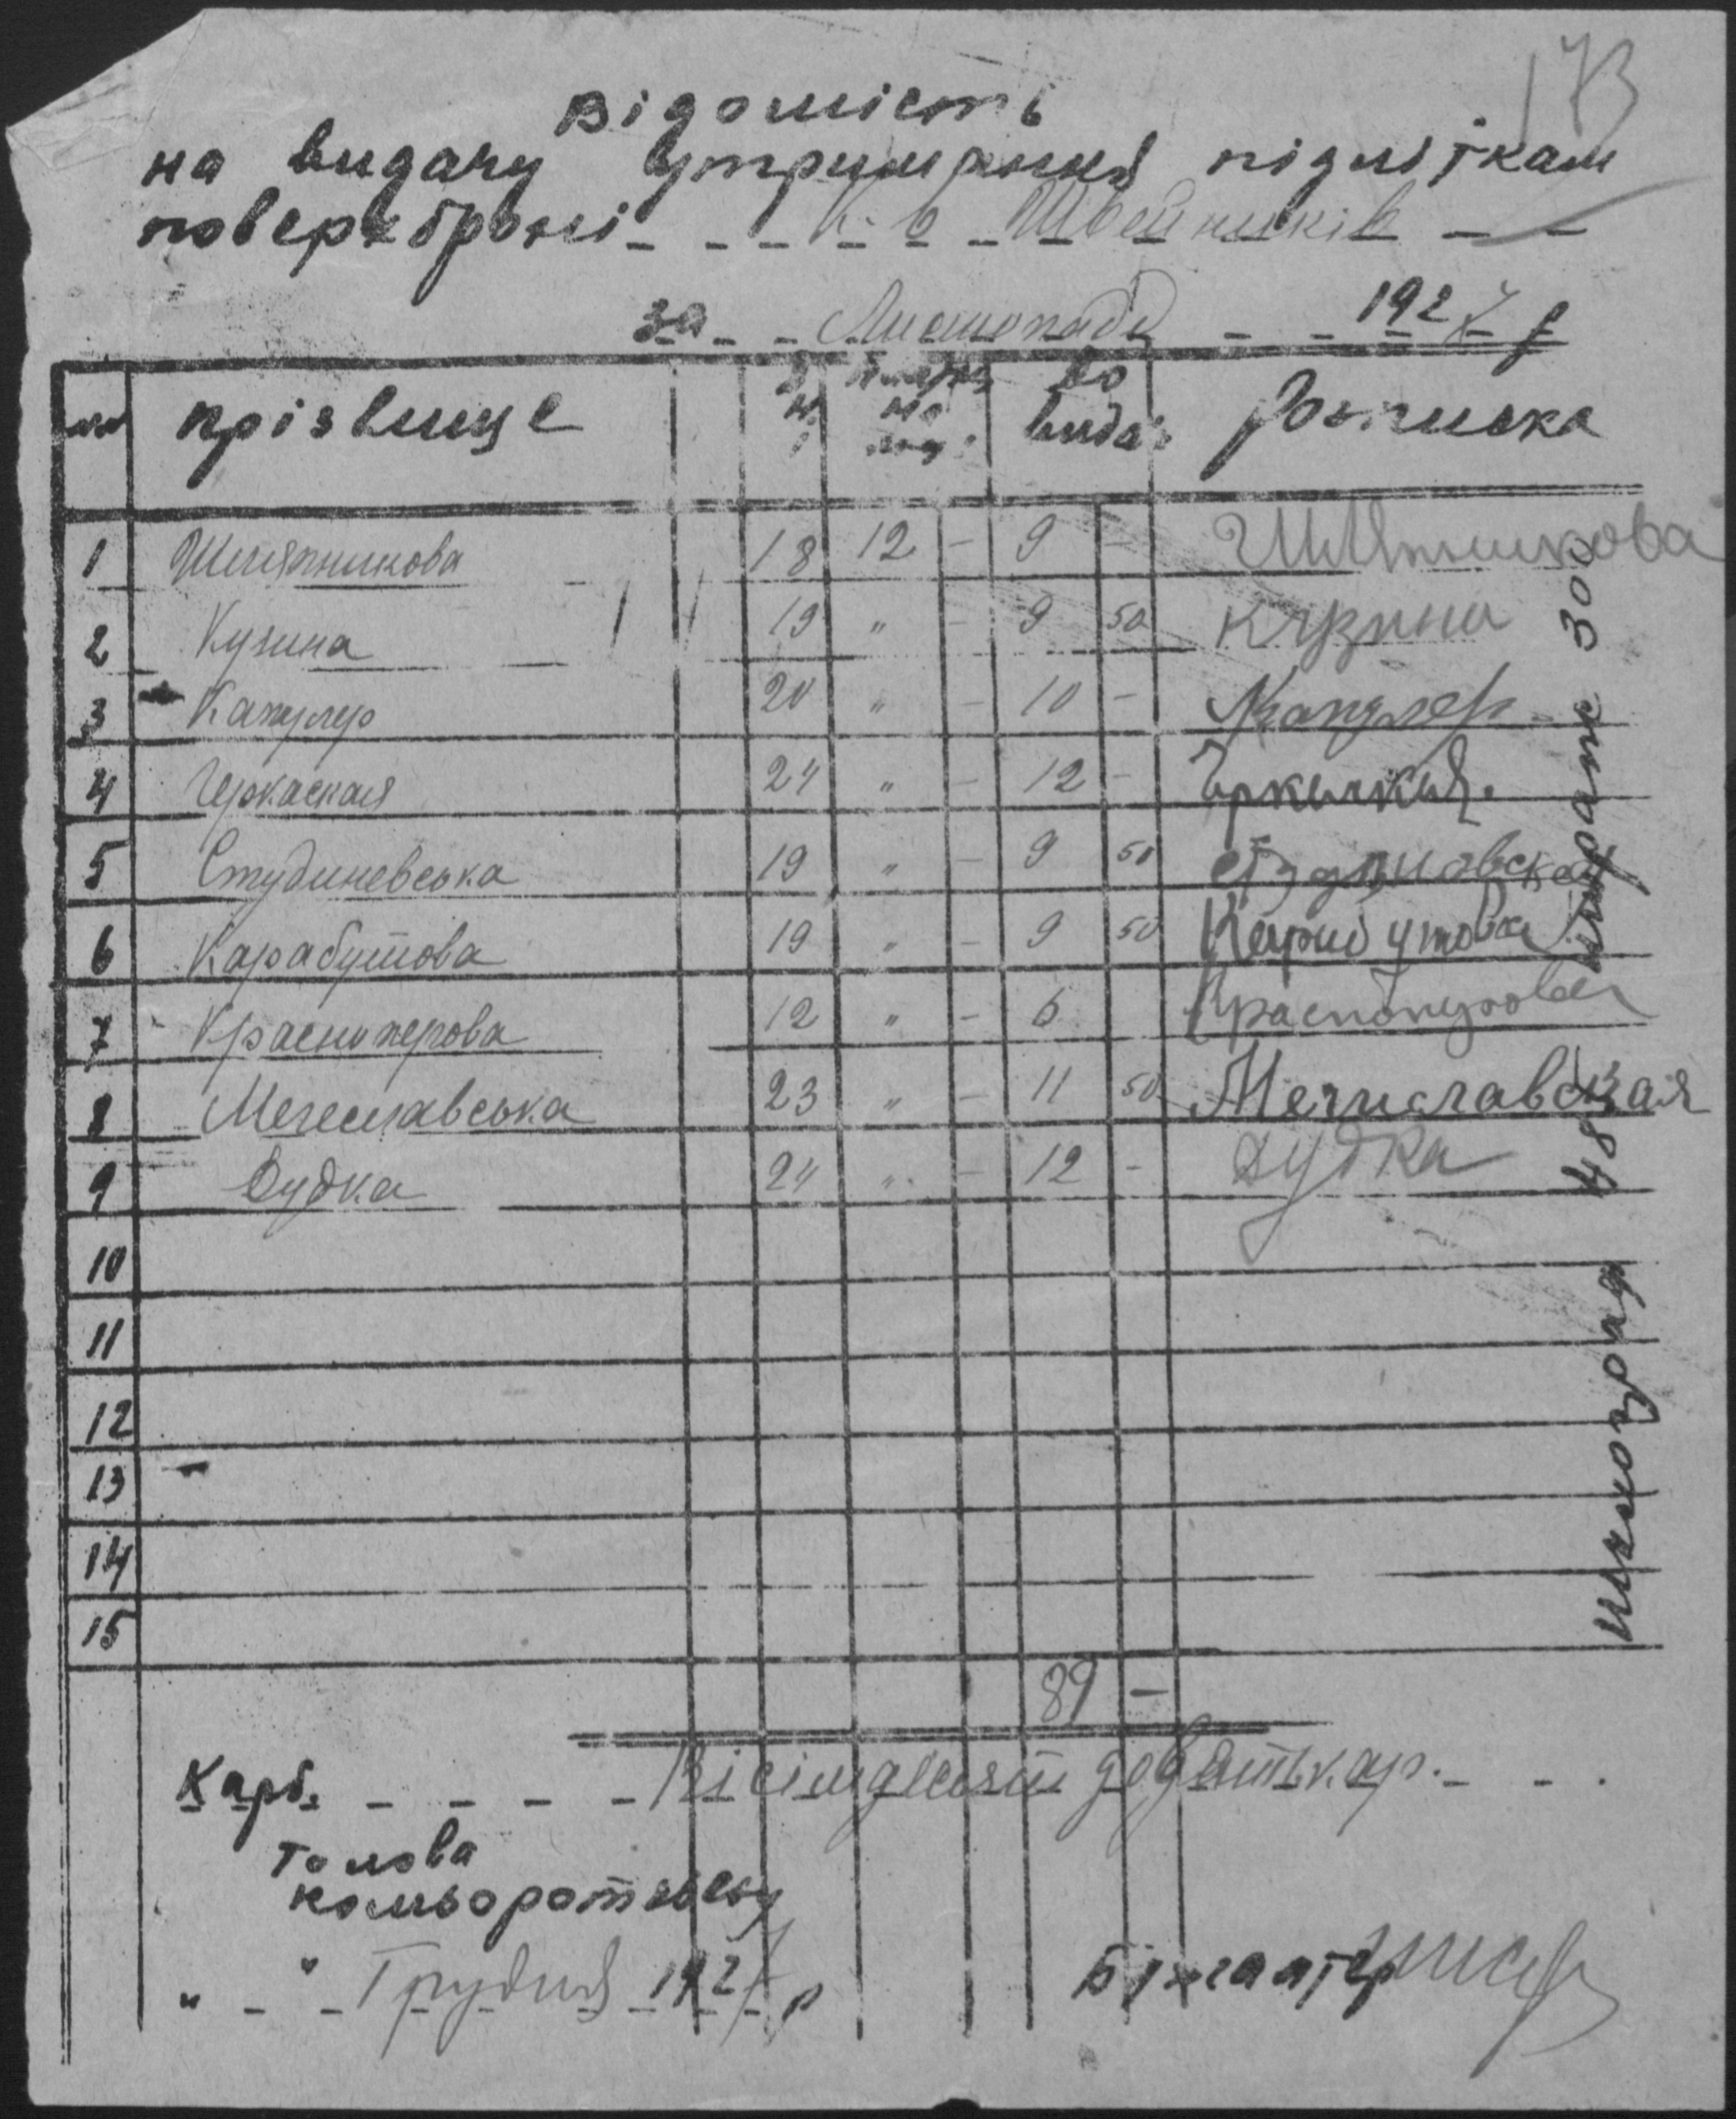 173
Відомість
на видачу утримання підліткам
поверхбронi К-в Швейників
за Листопад 1927 р
№№ Прізвище Дні Платня на міс. До видачі Росписка
1 Шляпникова 18 12 – 9 – Шляпникова
2 Кузина 19 " – 9 50 Кузина
3 Капулер 20 " – 10 – Капулер
4 Черкаская 24 " – 12 – Черкаская.
5 Студиневська 19 " – 9 50 Студиновская
6 Карабутова 19 " – 9 50 Карабутова
7 Красноперова 12 " – 6 Красноперова
8 Мечеславська 23 " – 11 50 Мечиславская
9 Дудка 24 " – 12 – Дудка
10
11
12
13
14
15
89 –
Карб. Вісімдесят девять кар.
Голова
" " Грудня 1927 р
Бухгалтер
48 тираж 300